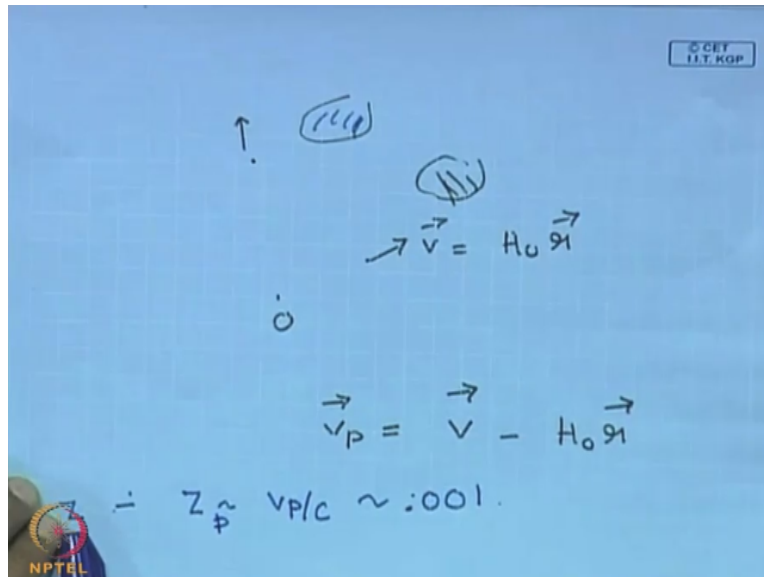 © CET
I.I.T. KGP
v⃗ = H₀ r⃗
O
v⃗p = v⃗ - H₀ r⃗
z ÷ Zp ~ vp/c ~ .001.
NPTEL